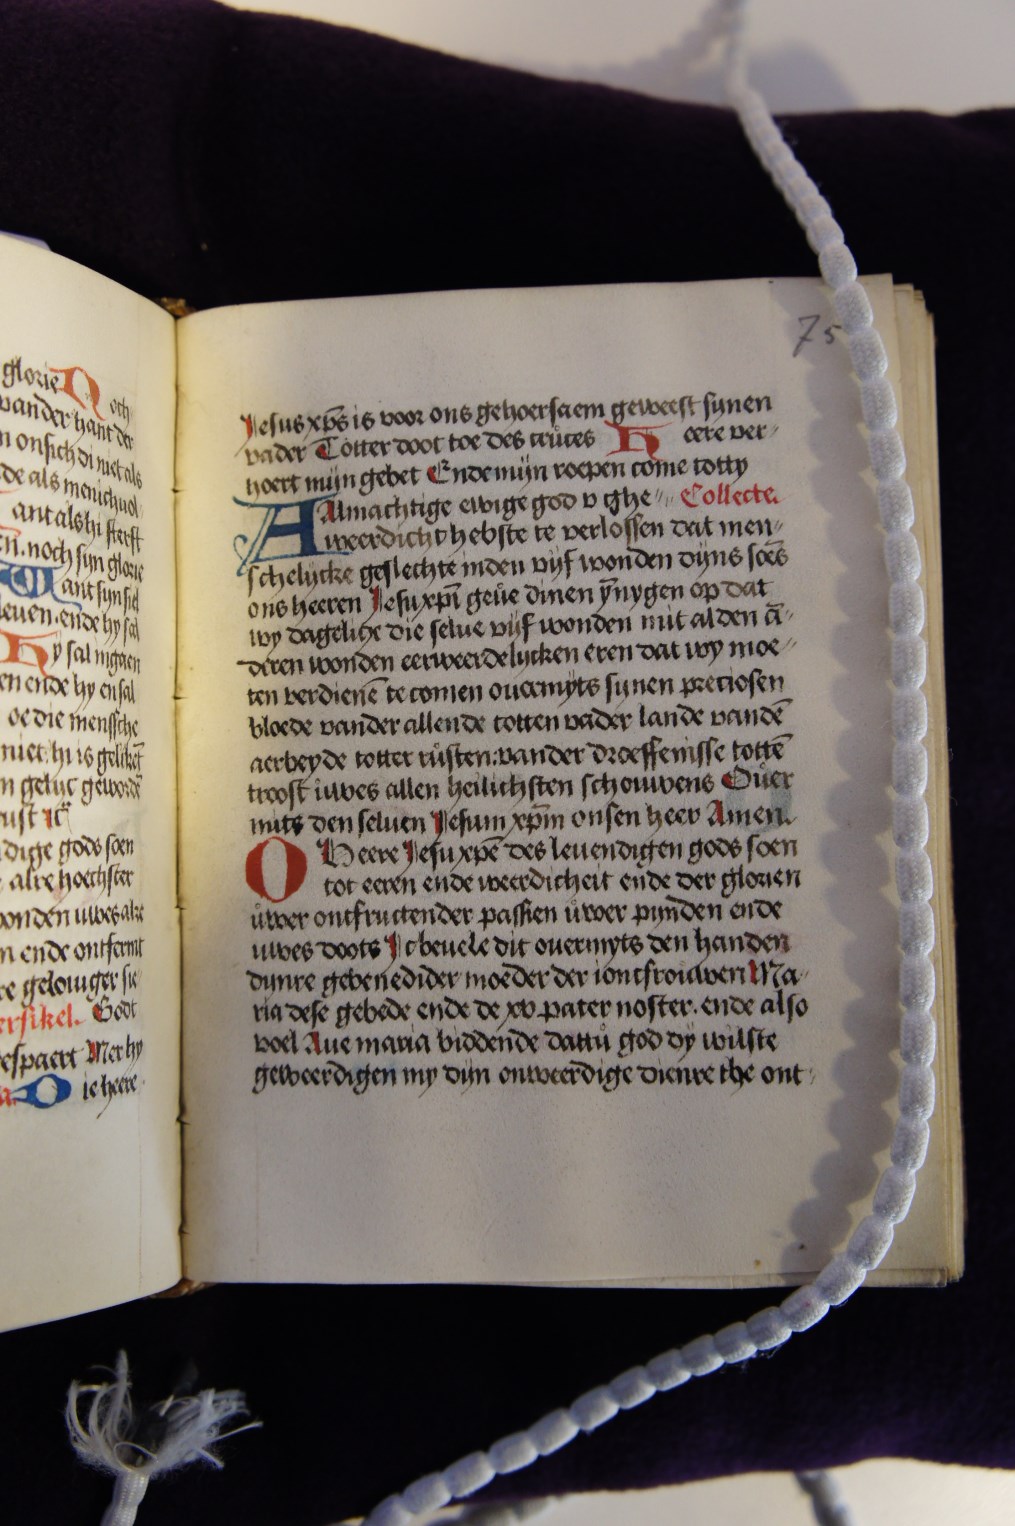 glorie Noch
vander hant der
n onsich di niet als
de als menichuol
ant als hi sterft
en. noch sijn glorie
Want sijn siel
leuen. ende hy sal
Hy sal ingaen
en ende hy en sal
oe die mensche
niet. hi is gelikēt
n gelyc gewordē
dige gods soen
alre hoechster
onden uwes alre
n ende ontfermt
re gelouiger sie
ersikel. Godt
espaert Mer hy
O ie heere
75
Jesus xp̄s is voor ons gehoersaem geweest synen
vader Totter doot toe des cruces Heere ver-
hoert mijn gebet Ende mijn roepen come totty
Almachtige ewige god v ghe- Collecte.
weerdicht hebste te verlossen dat men-
schelycke geslechte inden vijf wonden dijns soēs
ons heeren Jesu xp̄i geue dinen ȳnygen op dat
wy dagelicxe die selue vijf wonden mit al den ā-
deren wonden eerweerdelycken eren dat wy moe-
ten verdienē te comen ouermyts synen preciosen
bloede vander allende totten vader lande vandē
aerbeyde totter růsten: vander droeffenisse tottē
troost uwes allen heilichsten schouwens Ouer
mits den seluen Jesum xp̄m onsen heer Amen.
O Heere Jesu xpē des leuendigen gods soen
tot eeren ende weerdicheit ende der glorien
ůwer ontfructender passien ůwer pynden ende
uwes doots Ic beuele dit ouermyts den handen
dynre gebenedider moeder der ioncfrouwen Ma-
ria dese gebede ende de xv. pater noster. ende also
voel Aue maria biddende dattů god dy wilste
geweerdigen my dijn onweerdige dienre the ont-